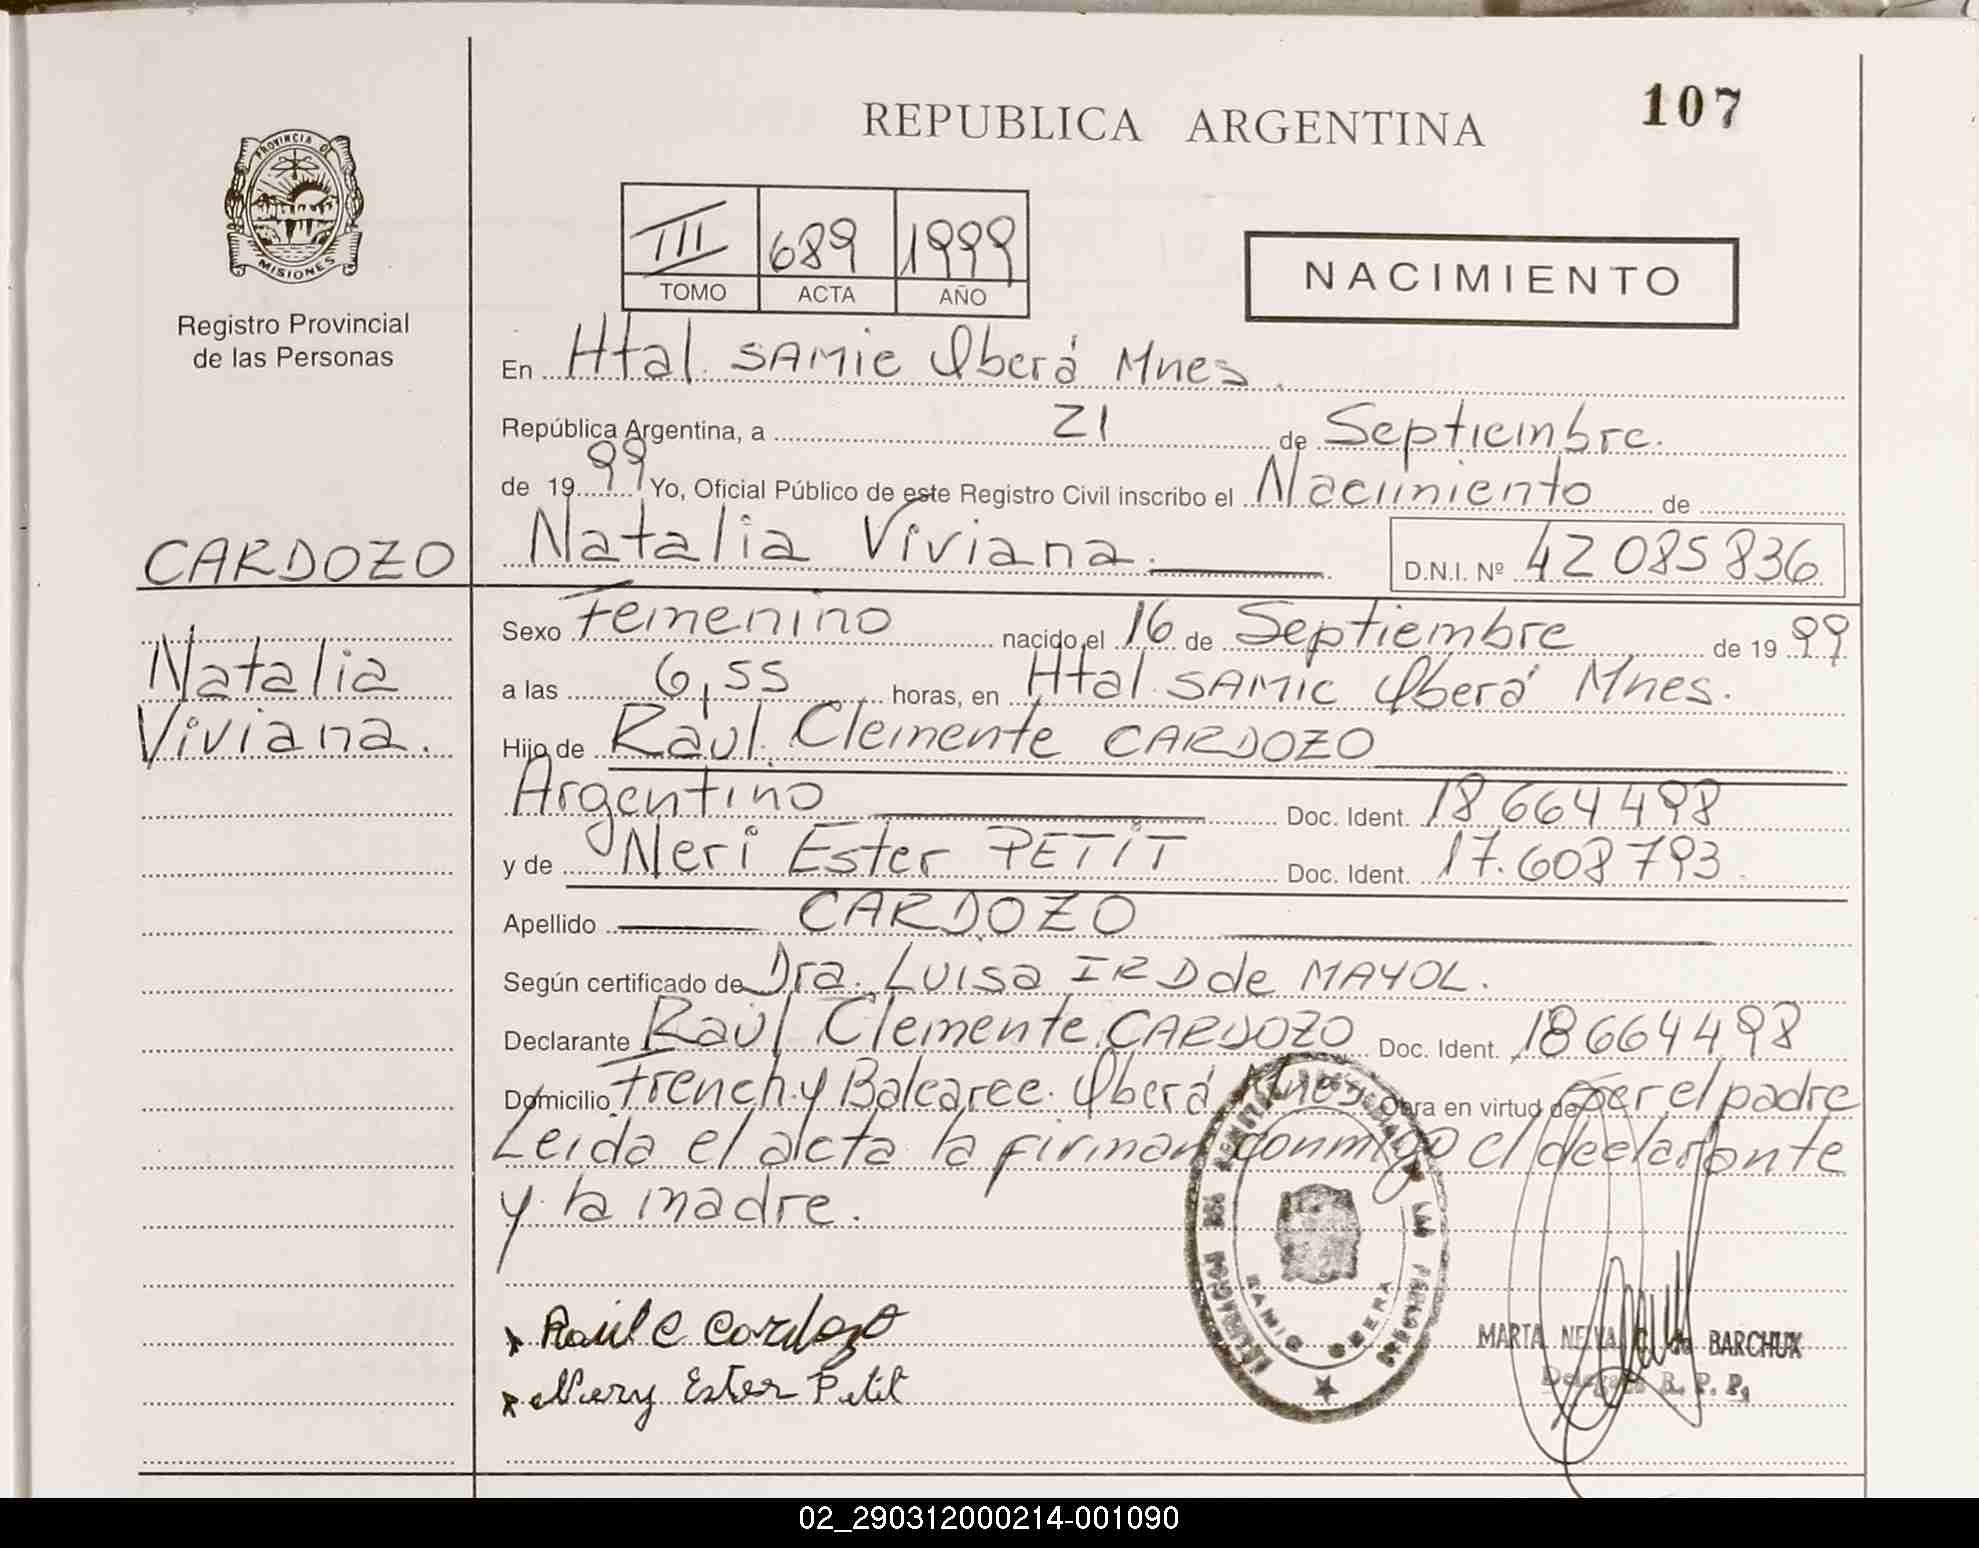 107
REPUBLICA ARGENTINA
PROVINCIA DE
MISIONES
Registro Provincial
de las Personas
III 689 1999
TOMO ACTA AÑO
NACIMIENTO
En Htal. SAMIC Oberá Mnes.
República Argentina, a 21 de Septiembre.
de 1999 Yo, Oficial Público de este Registro Civil inscribo el Nacimiento de
CARDOZO
Natalia Viviana. D.N.I. Nº 42 085 836
Natalia
Viviana.
Sexo Femenino nacido el 16 de Septiembre de 1999
a las 6,55 horas, en Htal. SAMIC Oberá Mnes.
Hijo de Raúl Clemente CARDOZO
Argentino Doc. Ident. 18 664 498
y de Neri Ester PETIT Doc. Ident. 17.608 793
Apellido CARDOZO
Según certificado de Dra. Luisa IRD de MAYOL.
Declarante Raúl Clemente CARDOZO Doc. Ident. 18 664 498
Domicilio French y Balcarce. Oberá Mnes. Obra en virtud de ser el padre
Leida el acta la firman conmigo el declarante
y la madre.
Raúl C Cardozo
Nery Ester Petit
SAMIC OBERA
MARTA NEIVA de BARCHUK
Delegada R. P. P.
02_290312000214-001090